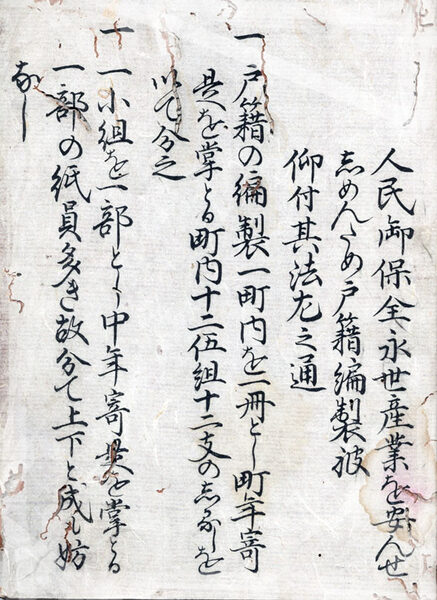 人民御保全永世産業を安んせ
しめんため戸籍編製被
仰付其法左之通
一戸籍の編製一町内を一冊とし町年寄
是を掌とる町内十二伍組十二支のしるしを
以て分之
一一小組を一部とし中年寄是を掌とる
一部の紙員多き故分て上下と成も妨
なし